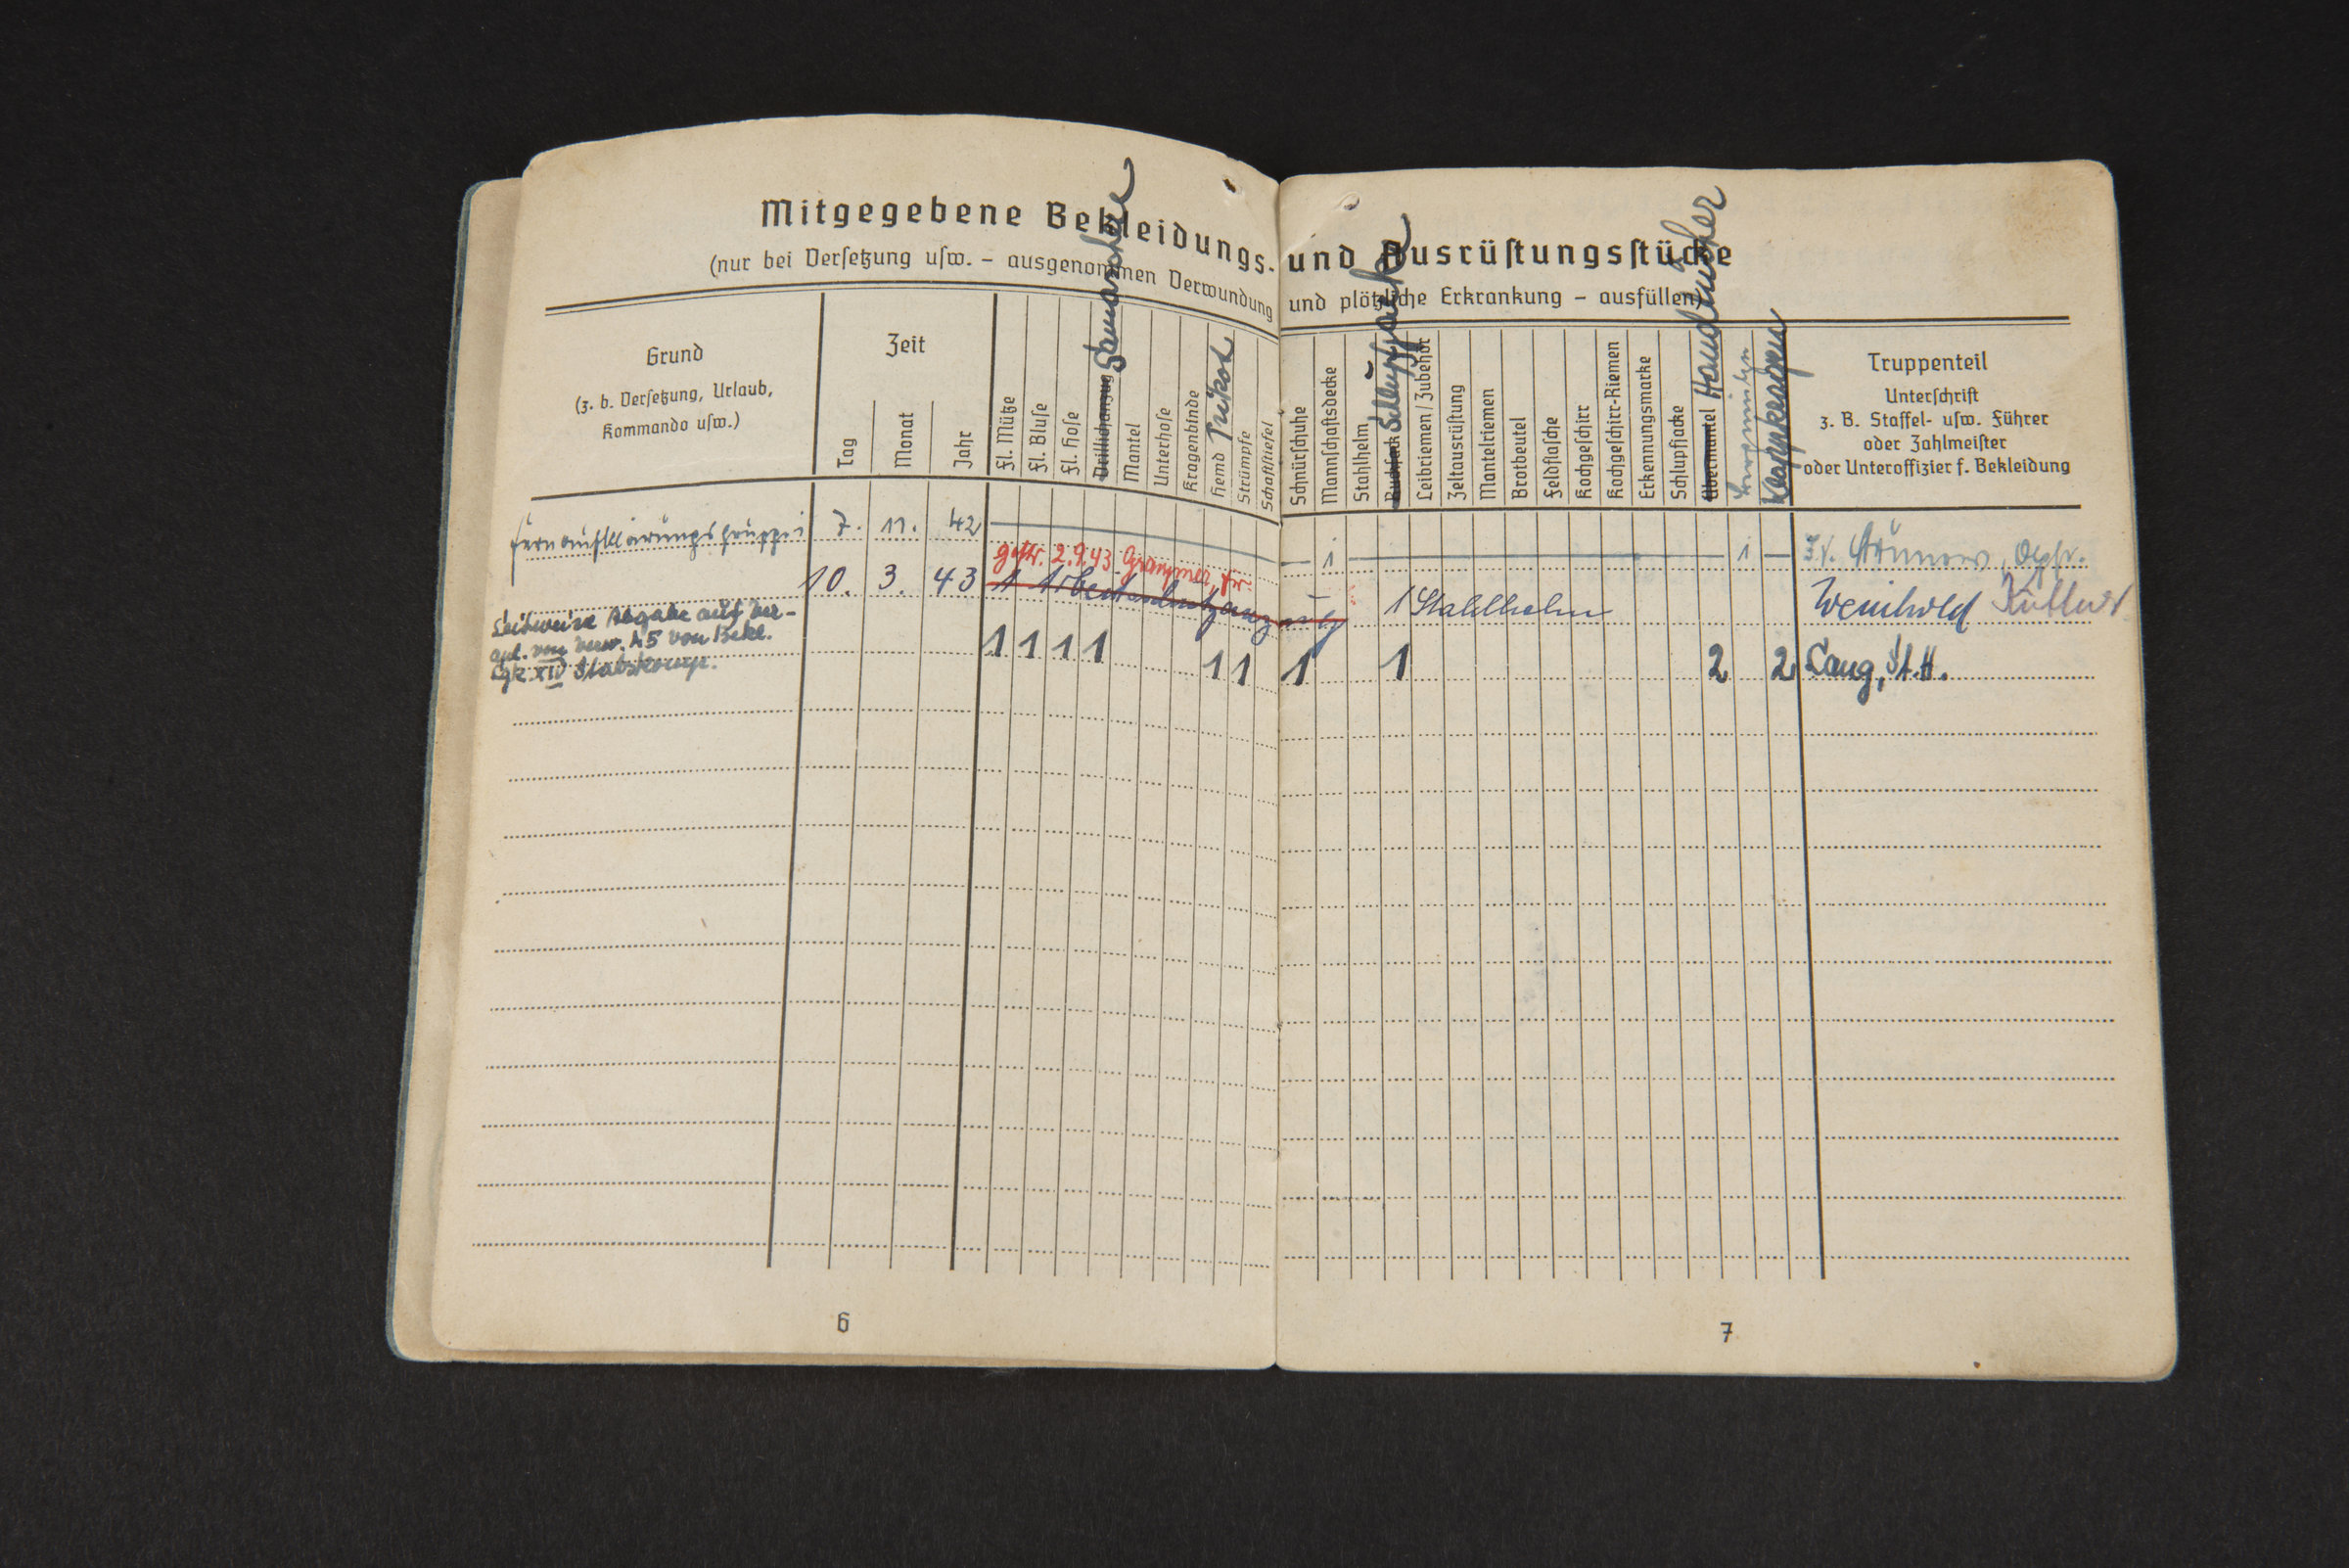 Mitgegebene Bekleidungs- und Ausrüstungsstücke
(nur bei Versetzung usw. – ausgenommen Verwundung und plötzliche Erkrankung – ausfüllen)
Grund
(z. b. Versetzung, Urlaub,
Kommando usw.)
Zeit
Tag
Monat
Jahr
Fl. Mütze
Fl. Bluse
Fl. Hose
Drillichanzug
Mantel
Unterhose
Kragenbinde
Hemd Trikot
Strümpfe
Schaftstiefel
Schnürschuhe
Mannschaftsdecke
Stahlhelm
Rucksack Schlupfjacke
Leibriemen/Zubehör
Zeltausrüstung
Mantelriemen
Brotbeutel
Feldflasche
Kochgeschirr
Kochgeschirr-Riemen
Erkennungsmarke
Schlupfjacke
Übermantel Handtücher
Klappkragen
Truppenteil
Unterschrift
z. B. Staffel- usw. Führer
oder Zahlmeister
oder Unteroffizier f. Bekleidung
Fernaufklärungsgruppe 1 7. 11. 42 1 1
gestr. 2.9.43
10. 3. 43 1 Arbeitsschutzanzug 1 Stahlhelm Weinhold
Leihweise Abgabe auf Ver-
von Bekl.
Lgk. XIV Stabskomp. 1 1 1 1 1 1 1 1 2 2 Lang, St.H.
6
7